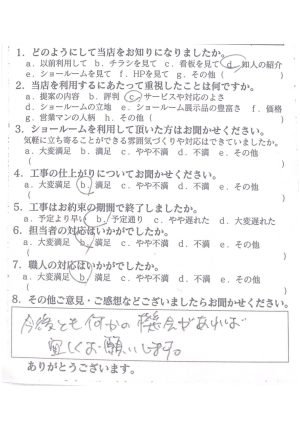 1. どのようにして当店をお知りになりましたか。
a. 以前利用して b. チラシを見て c. 看板を見て d. 知人の紹介
e. ショールームを見て f. HPを見て g. その他（ ）
2. 当店を利用するにあたって重視したことは何ですか。
a. 提案の内容 b. 評判 c. サービスや対応のよさ
d. ショールームの立地 e. ショールーム展示品の豊富さ f. 価格
g. 営業マンの人柄 h. その他（ ）
3. ショールームを利用して頂いた方はお聞かせください。
気軽に立ち寄ることができる雰囲気づくりや対応はできていましたか。
a. 大変満足 b. 満足 c. やや不満 d. 不満 e. その他
（ ）
4. 工事の仕上がりについてお聞かせください。
a. 大変満足 b. 満足 c. やや不満 d. 不満 e. その他
（ ）
5. 工事はお約束の期間で終了しましたか。
a. 予定より早い b. 予定通り c. やや遅れた d. 大変遅れた
6. 担当者の対応はいかがでしたか。
a. 大変満足 b. 満足 c. やや不満 d. 不満 e. その他
（ ）
7. 職人の対応はいかがでしたか。
a. 大変満足 b. 満足 c. やや不満 d. 不満 e. その他
（ ）
8. その他ご意見・ご感想などございましたらお聞かせください。
今後とも何かの機会があれば
宜しくお願いします。
ありがとうございます。